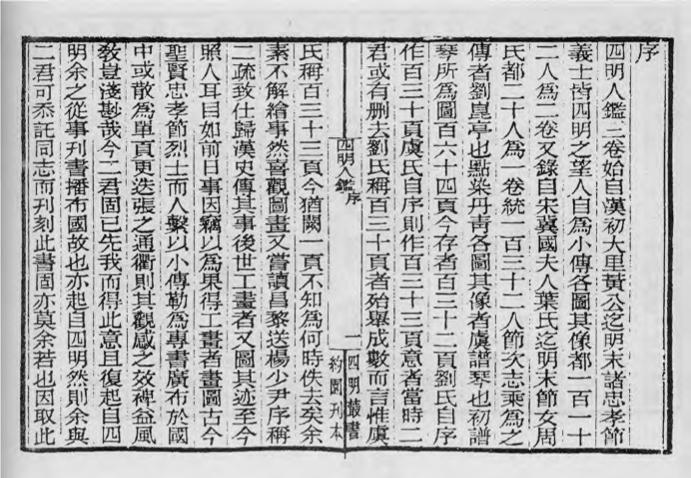 序
四明人鑑三卷始自漢初大里黃公迄明末諸忠孝節
義士皆四明之望人自為小傳各圖其像都一百一十
二人為二卷又錄自宋冀國夫人葉氏迄明末節女周
氏都二十人為一卷統一百三十二人節次志乘為之
傳者劉崑亭也點染丹靑各圖其像者虞譜琴也初譜
琴所為圖百六十四頁今存者百三十二頁劉氏自序
作百三十頁虞氏自序則作百三十三頁意者當時二
君或有刪去劉氏稱百三十頁者殆舉成數而言惟虞
四明人鑑 序
一
四明叢書
約園刊本
氏稱百三十三頁今猶闕一頁不知為何時佚去矣余
素不解繪事然喜觀圖畫又嘗讀昌黎送楊少尹序稱
二疏致仕歸漢史傳其事後世工畫者又圖其迹至今
照人耳目如前日事因竊以為果得工畫者畫圖古今
聖賢忠孝節烈士而人繫以小傳勒為專書廣布於國
中或散為單頁更迭張之通衢則其觀感之效裨益風
敎豈淺尠哉今二君固已先我而得此意且復起自四
明余之從事刊書播布國故也亦起自四明然則余與
二君可忝託同志而刊刻此書固亦莫余若也因取此